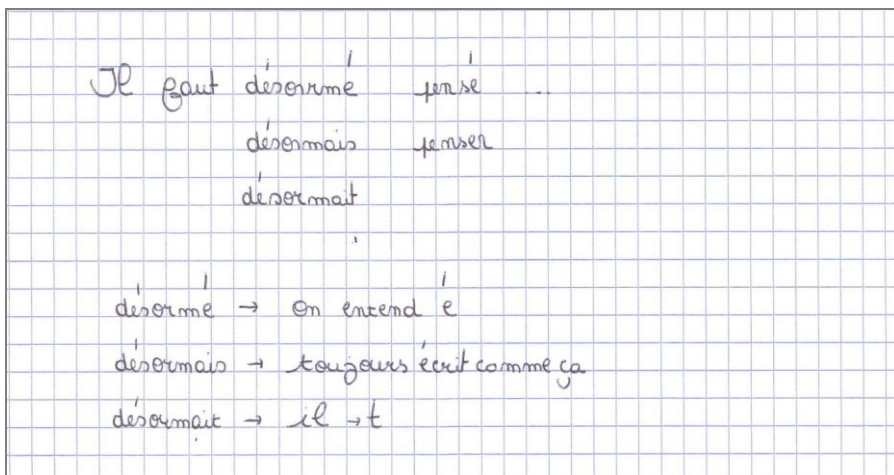 Il faut désormé pensé ...
désormais penser
désormait
désormé → on entend é
désormais → toujours écrit comme ça
désormait → il → t